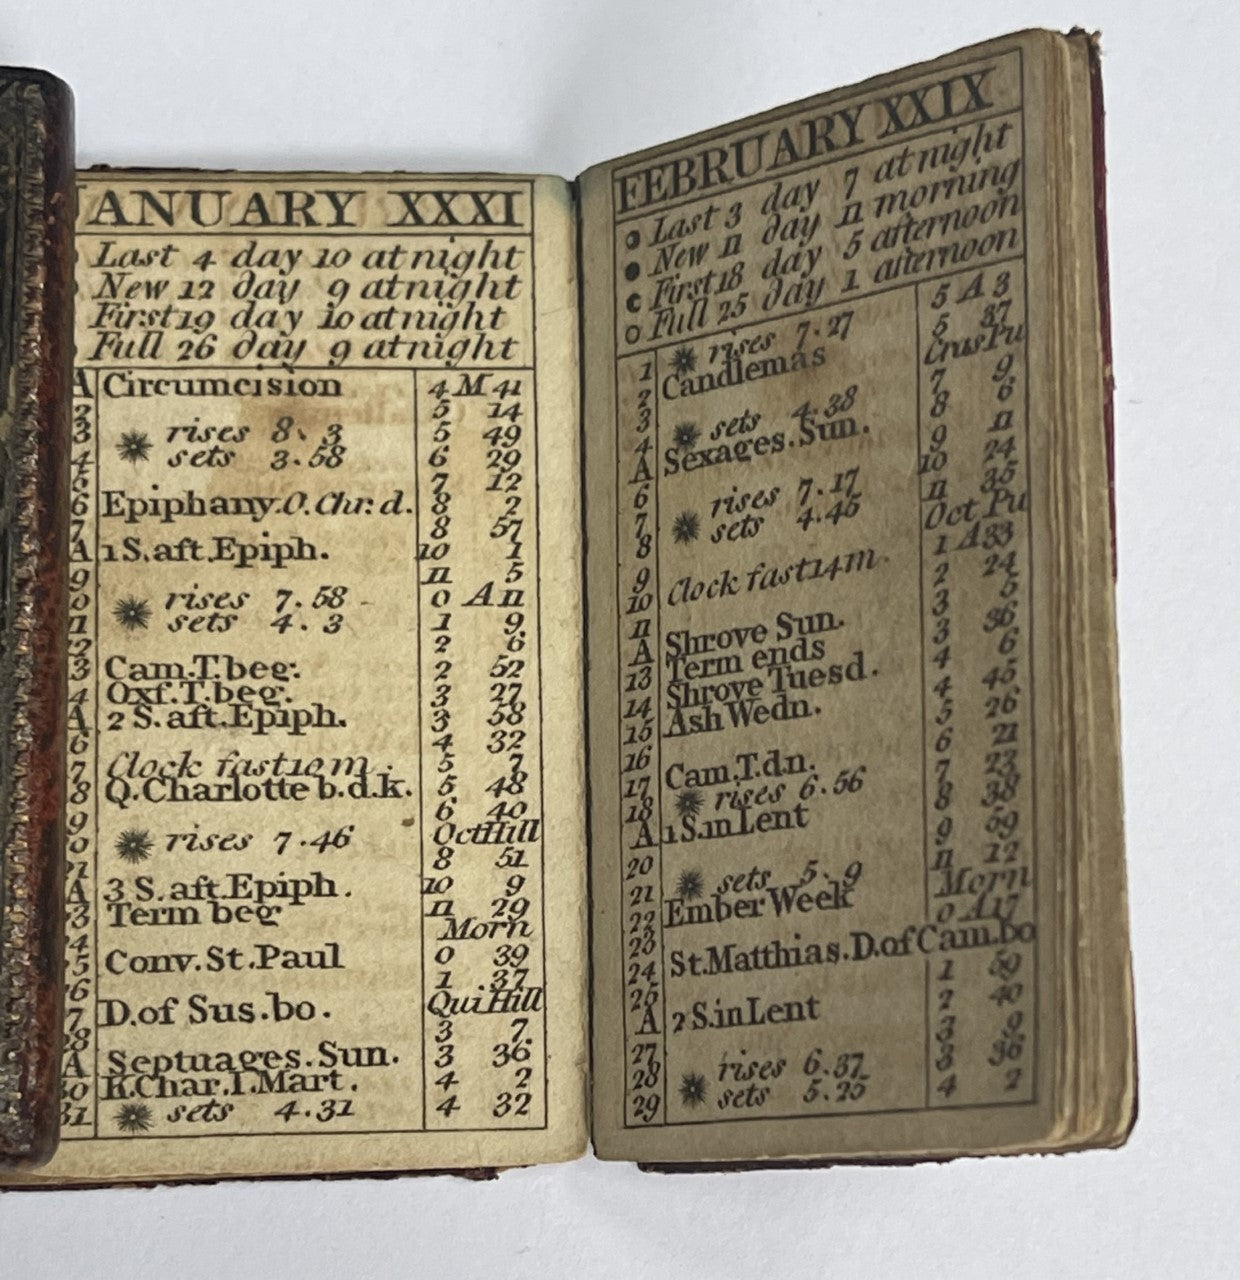 JANUARY XXXI
Last 4 day 10 at night
New 12 day 9 at night
First 19 day 10 at night
Full 26 day 9 at night
A Circumcision 4 M 41
2 5 14
3 rises 8. 3 5 49
4 sets 3.58 6 29
5 7 12
6 Epiphany.O.Chr.d. 8 2
7 8 57
A 1 S.aft.Epiph. 10 1
9 11 5
0 rises 7.58 0 A 11
11 sets 4.3 1 9
12 2 6
3 Cam.T.beg. 2 52
4 Oxf.T.beg. 3 27
A 2 S.aft.Epiph. 3 58
6 4 32
7 Clock fast 10 m. 5 7
8 Q.Charlotte b.d.k. 5 48
9 6 40
0 rises 7.46 Oct Hill
21 8 51
A 3 S.aft.Epiph. 10 9
3 Term beg 11 29
24 Morn
25 Conv.St.Paul 0 39
26 1 37
7 D.of Sus.bo. Qui Hill
28 3 7
A Septuages.Sun. 3 36
30 K.Char.I.Mart. 4 2
31 sets 4.31 4 32
FEBRUARY XXIX
Last 3 day 7 at night
New 11 day 11 morning
First 18 day 5 afternoon
Full 25 day 1 afternoon
1 rises 7.27 5 A 3
2 Candlemas 5 37
3 Cras Pu
4 sets 4.38 7 9
A Sexages.Sun. 8 6
6 9 11
7 rises 7.17 10 24
8 sets 4.45 11 35
9 Oct Pu
10 Clock fast 14 m. 1 A 33
11 2 24
A Shrove Sun. 3 5
13 Term ends 3 36
14 Shrove Tuesd. 4 6
15 Ash Wedn. 4 45
16 5 26
17 Cam.T.dn. 6 21
18 rises 6.56 7 23
A 1 S.in Lent 8 38
20 9
21 sets 5.9 11 12
22 Ember Week Morn
23 0 A 17
24 St.Matthias.D.of Cam.bo
25 1
A 2 S.in Lent 2 40
27 3
28 rises 6.37 3 36
29 sets 5.25 4 2